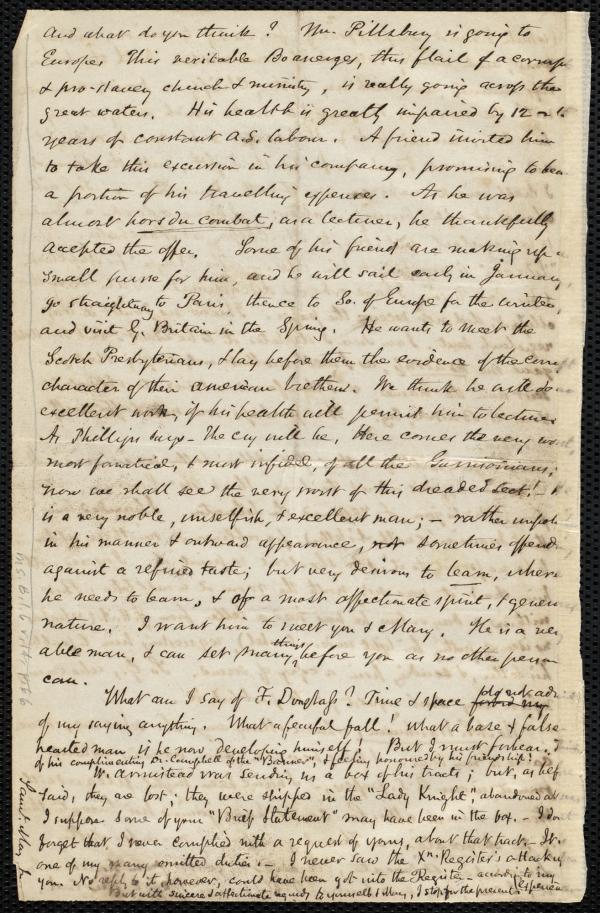 And what do you think? Mr. Pillsbury is going to
Europe. This veritable Boanerges, this flail of a corrupt
& pro-slavery church & ministry, is really going across the
great waters. His health is greatly impaired by 12 or
years of constant A.S. labour. A friend invited him
to take this excursion in his company, promising to bear
a portion of his travelling expenses. As he was
almost hors du combat, as a lecturer, he thankfully
accepted the offer. Some of his friends are making up a
small purse for him, and he will sail early in January,
go straightway to Paris, thence to So. of Europe for the winter,
and visit G. Britain in the Spring. He wants to meet the
Scotch Presbyterians, & lay before them the evidence of the
character of their American brethren. We think he will do
excellent work, if his health will permit him to lecture.
As Phillips says - the cry will be, Here comes the very
most fanatical, & most infidel, of all the Garrisonians;
now we shall see the very worst of this dreaded sect! -
is a very noble, unselfish, & excellent man; - rather
in his manner & outward appearance, not sometimes
against a refined taste; but very desirous to learn, where
he needs to learn, & of a most affectionate spirit, &
nature. I want him to meet you & Mary. He is a
able man, & can set many things before you as no other person
can.
What can I say of F. Douglass? Time & space forbid my do not
of my saying anything. What a fearful fall! what a base & false
hearted man is he now developing himself! But I must forbear.
of his complimenting Dr. Campbell of the "Banner", & feeling honoured by his friendship!
W. Armistead was sending us a box of his tracts; but, as
said, they are lost; they were shipped in the "Lady Knight", abandoned at
I suppose some of your "Brief Statement" may have been in the box. - I don't
forget that I never complied with a request of yours, about that tract. - It
one of my many omitted duties. - I never saw the Xn. Register's attack
you. No reply to it, however, could have been got into the Register - according to my
But with sincere & affectionate regards to yourself & Mary, I stop for the present
Saml. May Jr.